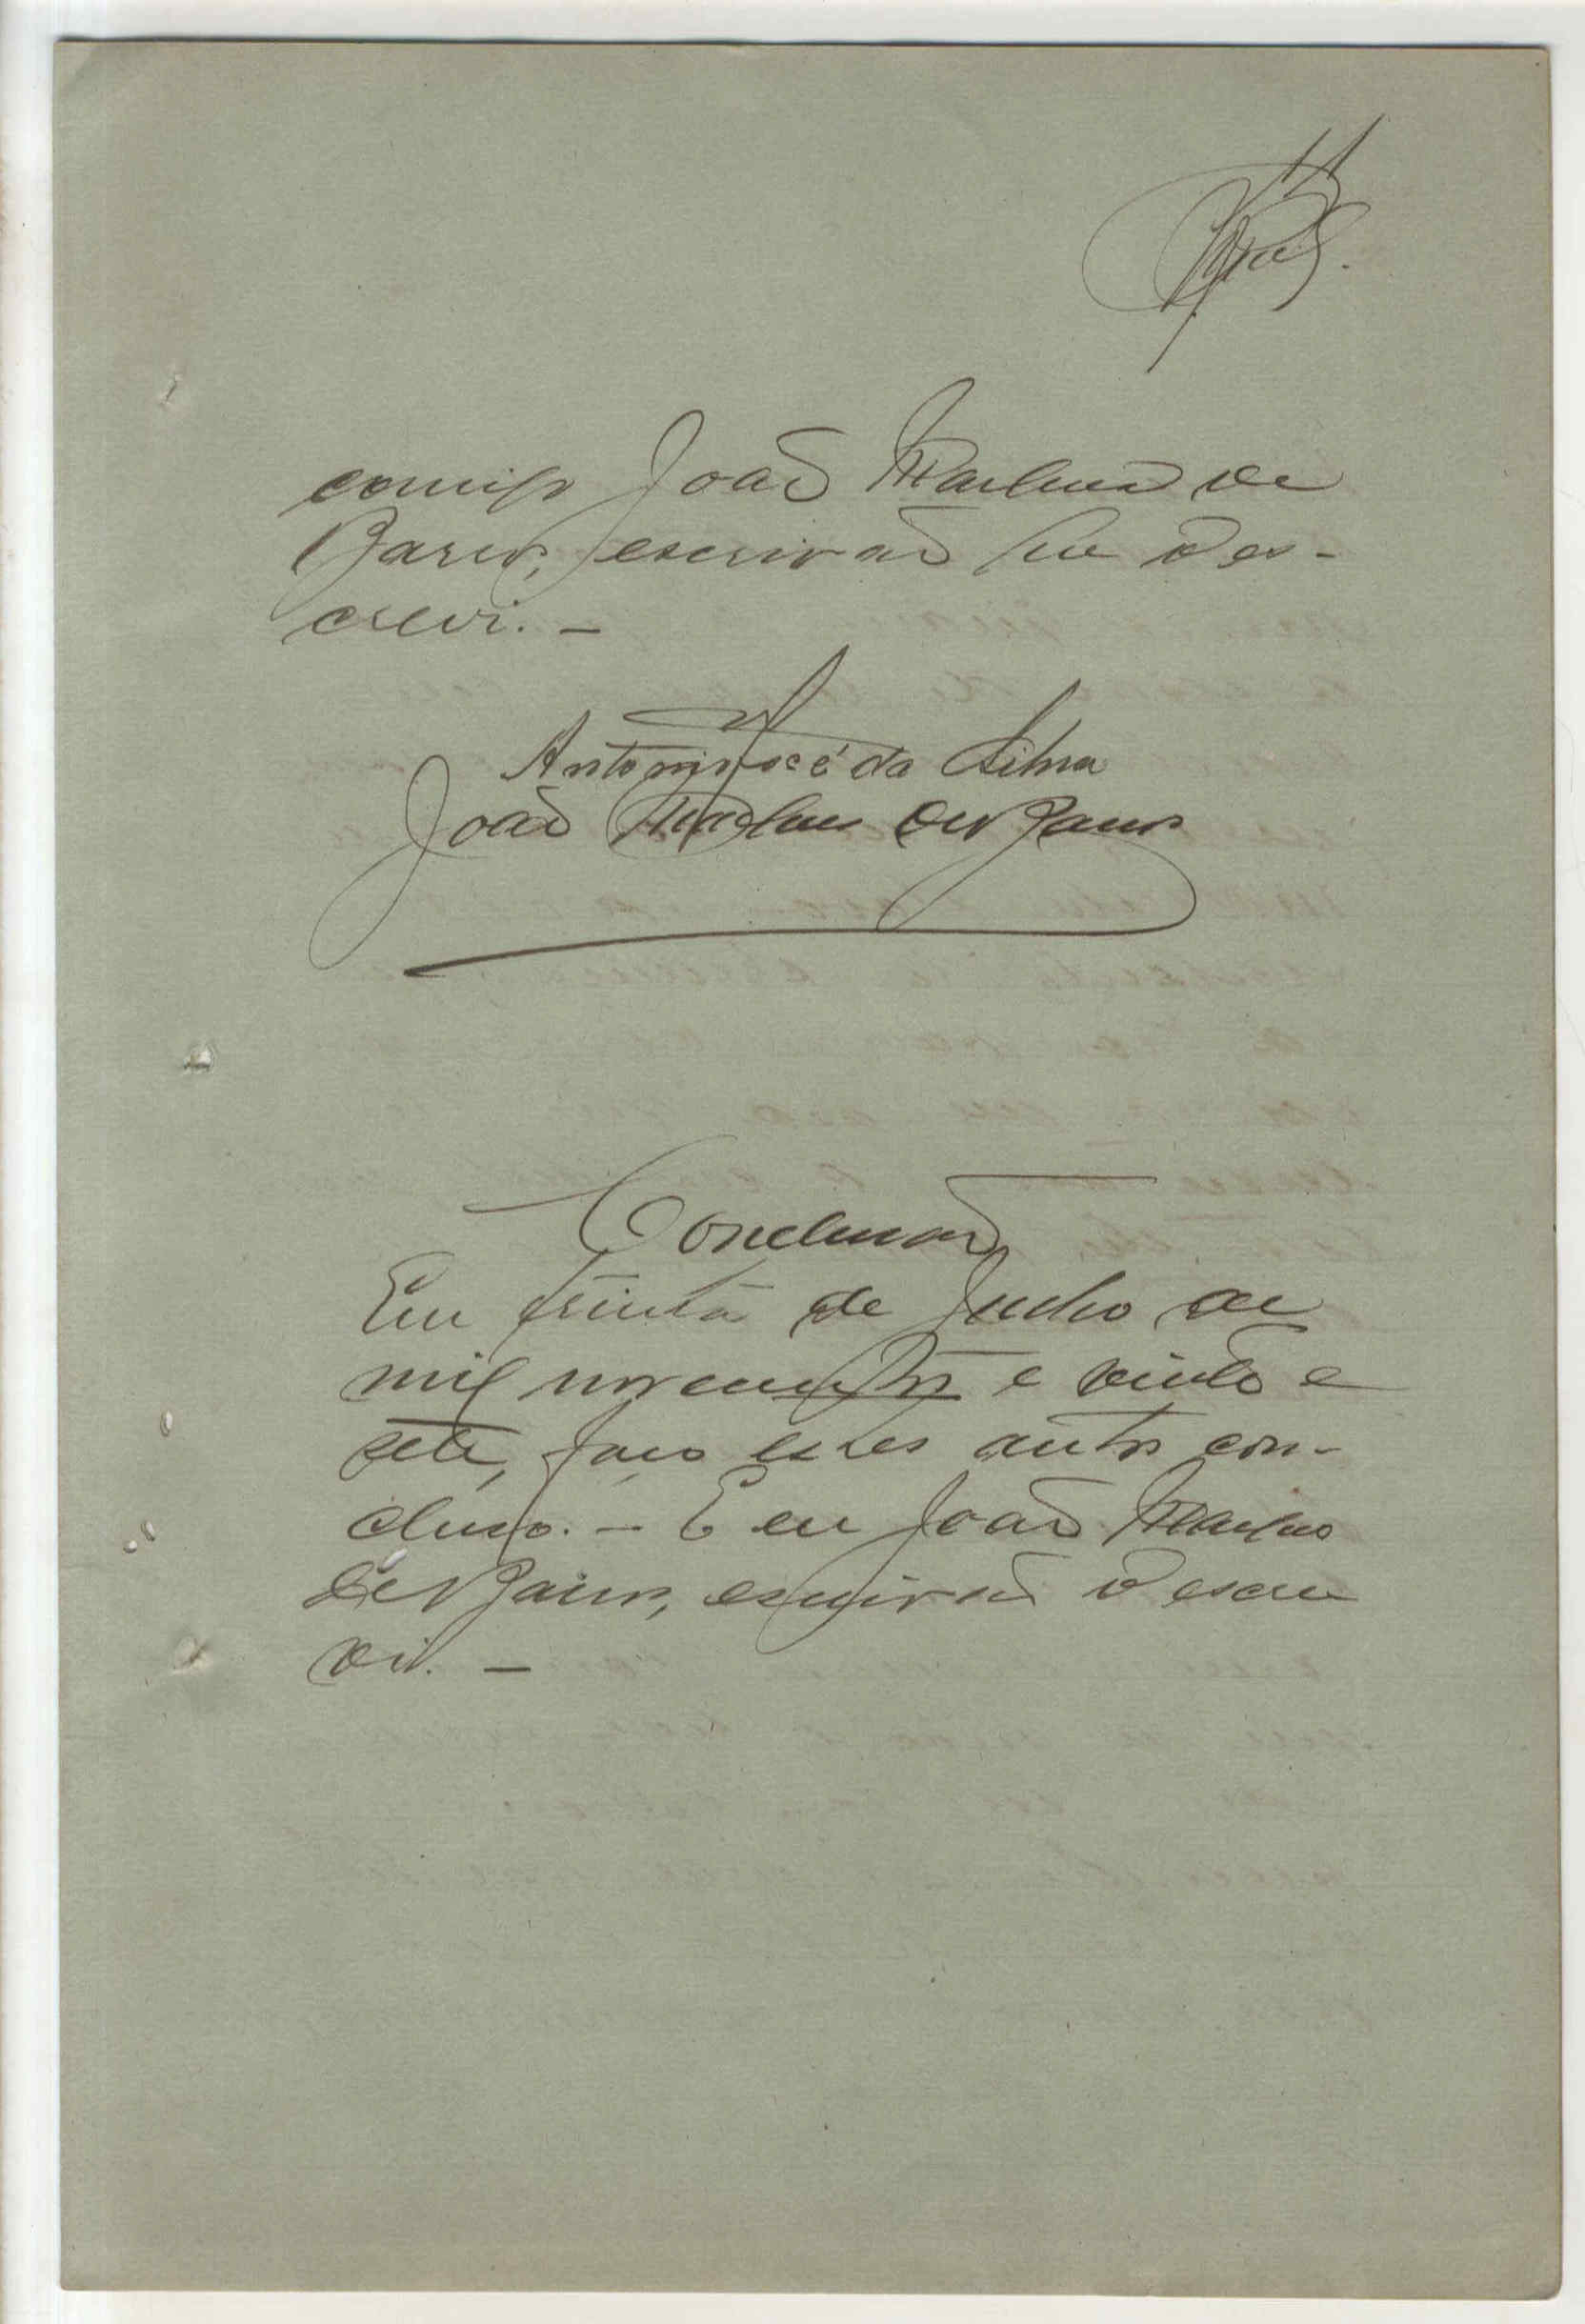 11
comigo João Martins de
Barros, escrivão que o es-
crevi. —
Antonio José da Silva
João Martins de Barros
Conclusão
Em trinta de Julho de
mil novecentos e vinte e
sete, faço estes autos con-
clusos. — E eu João Martins
de Barros, escrivão o escre
vi. —